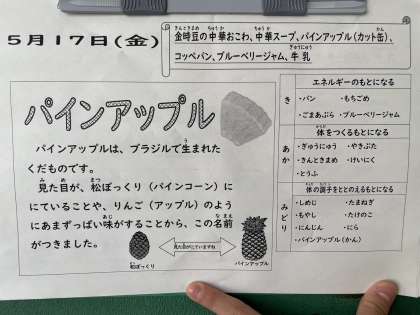 5月17日(金)
金時豆の中華おこわ、中華スープ、パインアップル(カット缶)、
コッペパン、ブルーベリージャム、牛乳
パインアップル
パインアップルは、ブラジルで生まれた
くだものです。
見た目が、松ぼっくり(パインコーン)に
にていることや、りんご(アップル)のよう
にあまずっぱい味がすることから、この名前
がつきました。
松ぼっくり
見た目がにていますね
パインアップル
き
エネルギーのもとになる
・パン ・もちごめ
・ごまあぶら ・ブルーベリージャム
あか
体をつくるもとになる
・ぎゅうにゅう ・やきぶた
・きんときまめ ・けいにく
・とうふ
みどり
体の調子をととのえるもとになる
・しめじ ・たまねぎ
・もやし ・たけのこ
・にんじん ・にら
・パインアップル(かん)